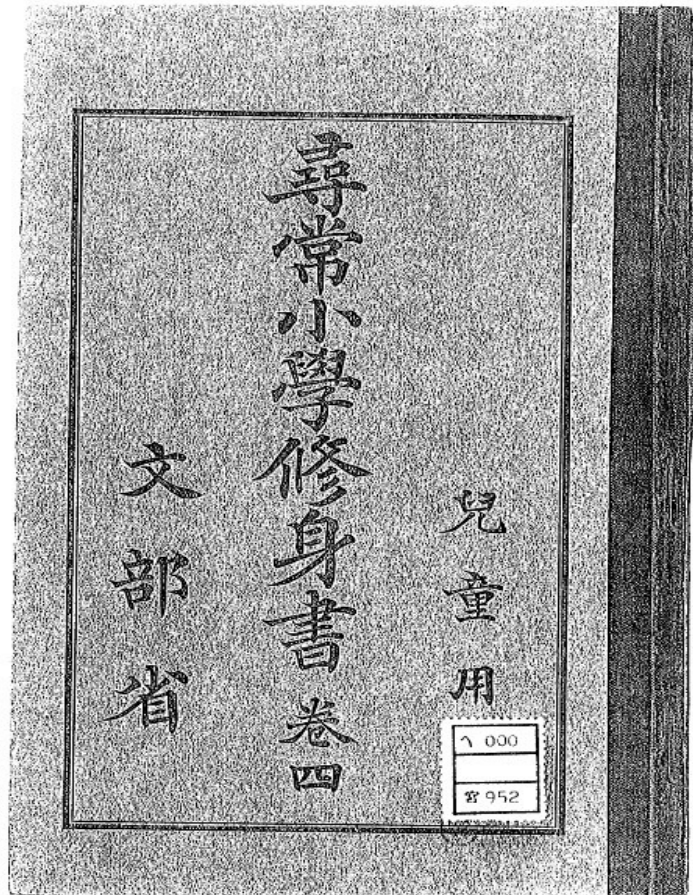 兒童用
尋常小學修身書 卷四
文部省
ヘ 000
952